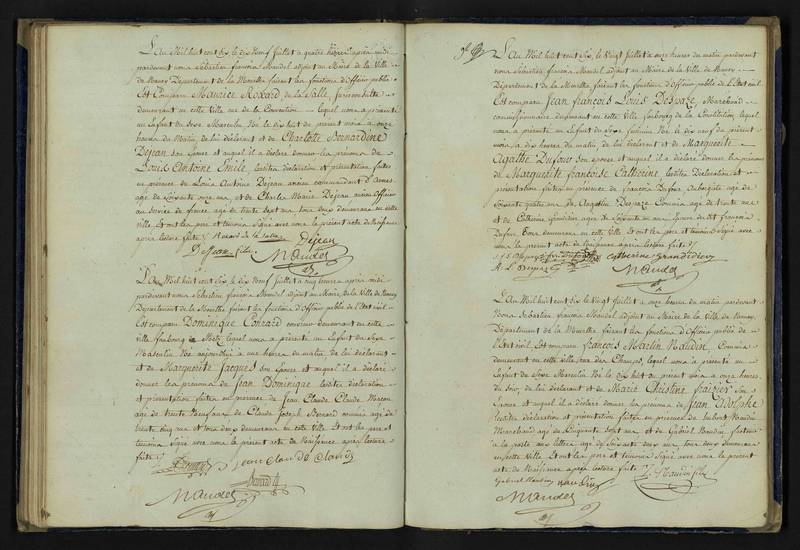 L'An Mil huit cent dix, le dix Neuf Juillet à quatre heures après midi
pardevant nous Sébastien françois Mandel adjoint au Maire de la Ville
de Nancy Département de la Meurthe faisant les fonctions d'officier public
Est Comparu Maurice Roxard de la Salle, jurisconsulte
demeurant en cette Ville rue de la Constitution lequel nous a présenté
un Enfant du Sexe Masculin Né le dix huit du présent mois à onze
heures du Matin, de lui déclarant et de Charlotte Bernardine
Dejean Son Epouse et auquel il a déclaré donner les prénoms de
Louis Antoine Emile, lesdites déclaration et présentation faites
en présence de Louis Antoine Dejean ancien commandant d'Armes
agé de soixante onze ans, et de Charles Marie Dejean ancien Officier
au Service de france agé de trente Sept ans tous deux demeurans en cette
ville, Et ont les pere et témoins Signé avec nous le présent acte de Naissance
après lecture faite
Roxard de la Salle Dejean
Dejean fils
Mandel
L'An Mil huit cent dix, le dix Neuf Juillet à cinq heures après midi
pardevant nous Sébastien françois Mandel adjoint au Maire, de la Ville de Nancy
Département de la Meurthe faisant les fonctions d'Officier public de l'Etat civil
Est comparu Dominique Conrard demeurant en cette
ville faubourg lequel nous a présenté un Enfant du Sexe
Masculin Né aujourdhui à une heure du matin, de lui déclarant
et de Marguerite Jacques Son Epouse et auquel il a déclaré
donner les prénoms de Jean Dominique lesdites déclaration
et présentation faites en présence de Jean Claude Claude
agé de trente Neuf ans, et de Claude Joseph Bernard commis agé de
trente cinq ans et tous deux demeurans en cette ville Et ont les pere et
témoins Signé avec nous le présent acte de Naissance après lecture
faite
Jean Claude Claude
Bernard
Mandel
L'An Mil huit cent dix, le Vingt Juillet à onze heures du matin pardevant
nous Sébastien françois Mandel adjoint au Maire de la Ville de Nancy
Département de la Meurthe faisant les fonctions d'officier public de l'Etat civil
Est comparu Jean françois Louis Despaze, Marchand
commissionnaire demeurant en cette Ville faubourg de la Constitution, lequel
nous a présenté un Enfant du Sexe féminin Né le dix neuf du présent
mois à dix heures du matin, de lui déclarant et de Marguerite
Agathe Dufour Son épouse et auquel il a déclaré donner les prénoms
de Marguerite françoise Catherine, lesdites Déclaration et
présentation faites en présence de françois Dufour Aubergiste agé de
soixante quatre ans, de Angelin Despaze Commis agé de trente ans
et de Catherine Grandidier agée de Soixante un ans Epouse dudit françois
Dufour Tous demeurans en cette ville, Et ont les pere et témoins Signé avec
nous le présent acte de Naissance après lecture faite
Catherine Grandidier
A. L. Despaze Mandel
L'An Mil huit cent dix le Vingt Juillet à onze heures du matin pardevant
Nous Sébastien françois Mandel adjoint au Maire de la Ville de Nancy,
Département de la Meurthe faisant les fonctions d'Officier public de
l'Etat civil Est comparu françois Martin Naudin, Commis
demeurant en cette ville, rue des Champs, lequel nous a présenté un
Enfant du Sexe Masculin Né le dix huit du présent mois à onze heures
du Soir, de lui déclarant et de Marie Christine fraizier Son
Epouse et auquel il a déclaré donner les prénoms de Jean Adolphe
lesdites déclaration et présentation faites en présence de hubert Naudin
Marchand agé de Cinquante Sept ans et de Gabriel Naudin, facteur
à la poste aux lettres agé de Soixante deux ans, tous deux demeurans
en cette Ville Et ont les pere et témoins Signé avec nous le présent
acte de Naissance après lecture faite
Naudin fils
Gabriel Naudin Naudin
Mandel